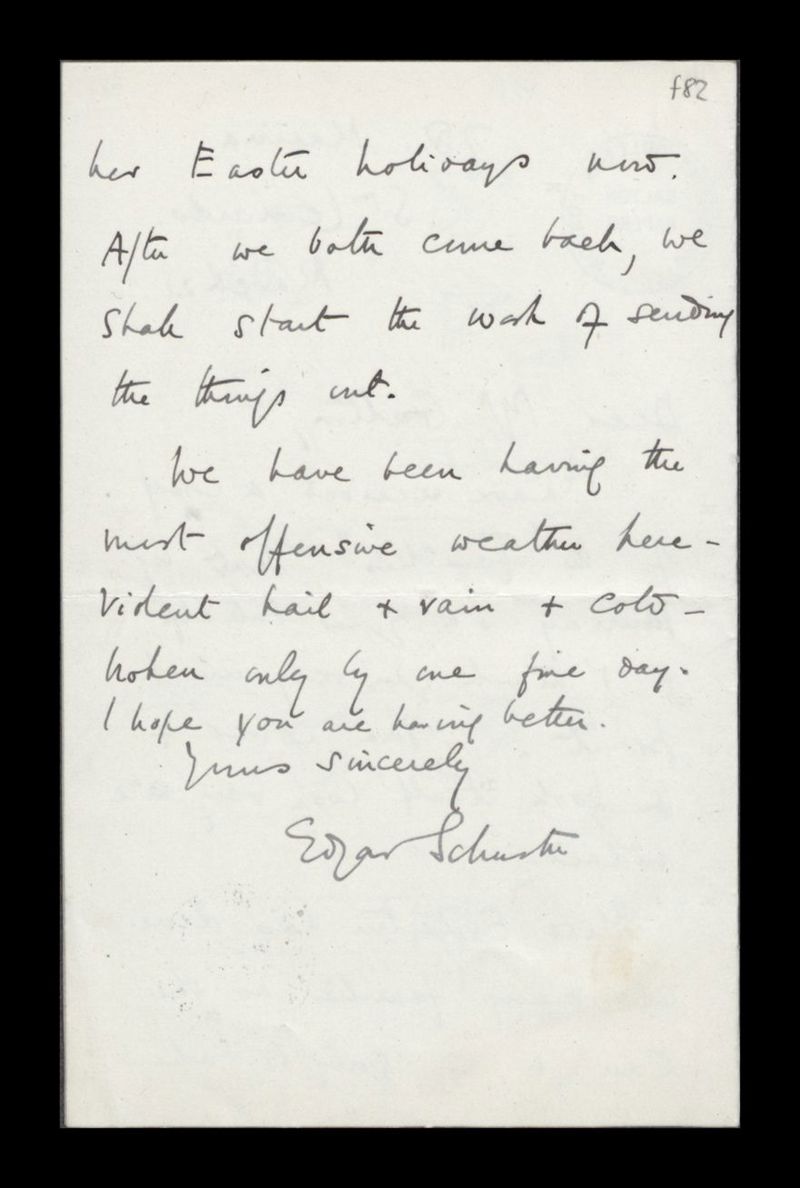 f82
her Easter holidays now.
After we both come back, we
shall start the work of sending
the things out.
We have been having the
most offensive weather here -
Violent hail + rain + cold -
broken only by one fine day.
I hope you are having better.
Yours sincerely
Edgar Schuster